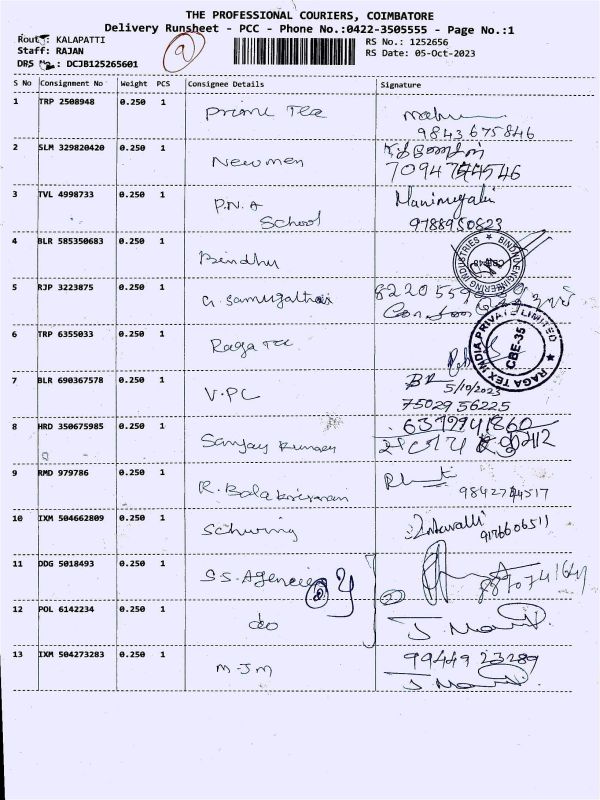 THE PROFESSIONAL COURIERS, COIMBATORE
Delivery Runsheet - PCC - Phone No.:0422-3505555 - Page No.:1
Route: KALAPATTI
RS No.: 1252656
Staff: RAJAN
RS Date: 05-Oct-2023
DRS No.: DCJB125265601
S No Consignment No Weight PCS Consignee Details Signature
1 TRP 2508948 0.250 1 Prime Tea
9843675846
2 SLM 329820420 0.250 1 Newmen
3 TVL 4998733 0.250 1 P.N.A Manimegalai
School 9788950823
4 BLR 585350683 0.250 1 Bindhu
BINDHU ENGINEERING INDUSTRIES
5 RJP 3223875 0.250 1 G. Samugaltrai
6 TRP 6355033 0.250 1 Raga Tex
RAGA TEX INDIA PRIVATE LIMITED CBE-35
7 BLR 690367578 0.250 1 V.PC
5/10/2023
75029 56225
8 HRD 350675985 0.250 1 Sanjay Kumar
6379941860
9 RMD 979786 0.250 1 R. Balakrisnan
10 IXM 504662809 0.250 1 Schwing
9176606511
11 DDG 5018493 0.250 1 S.S. Agencies
12 POL 6142234 0.250 1 do
13 IXM 504273283 0.250 1 M-JM
99449 23289